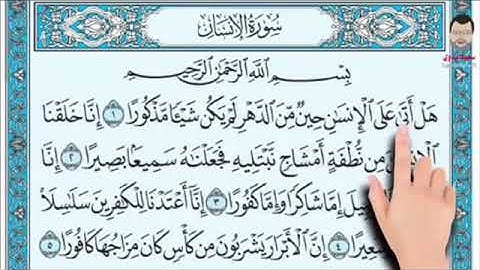 سُورَةُ الإِنسَانِ
بِسْمِ اللَّهِ الرَّحْمَٰنِ الرَّحِيمِ
هَلْ أَتَىٰ عَلَى ٱلْإِنسَٰنِ حِينٌ مِّنَ ٱلدَّهْرِ لَمْ يَكُن شَيْـًٔا مَّذْكُورًا ١ إِنَّا خَلَقْنَا
مِن نُّطْفَةٍ أَمْشَاجٍ نَّبْتَلِيهِ فَجَعَلْنَٰهُ سَمِيعًۢا بَصِيرًا ٢ إِنَّا
إِمَّا شَاكِرًا وَإِمَّا كَفُورًا ٣ إِنَّآ أَعْتَدْنَا لِلْكَٰفِرِينَ سَلَٰسِلَا۟
٤ إِنَّ ٱلْأَبْرَارَ يَشْرَبُونَ مِن كَأْسٍ كَانَ مِزَاجُهَا كَافُورًا ٥